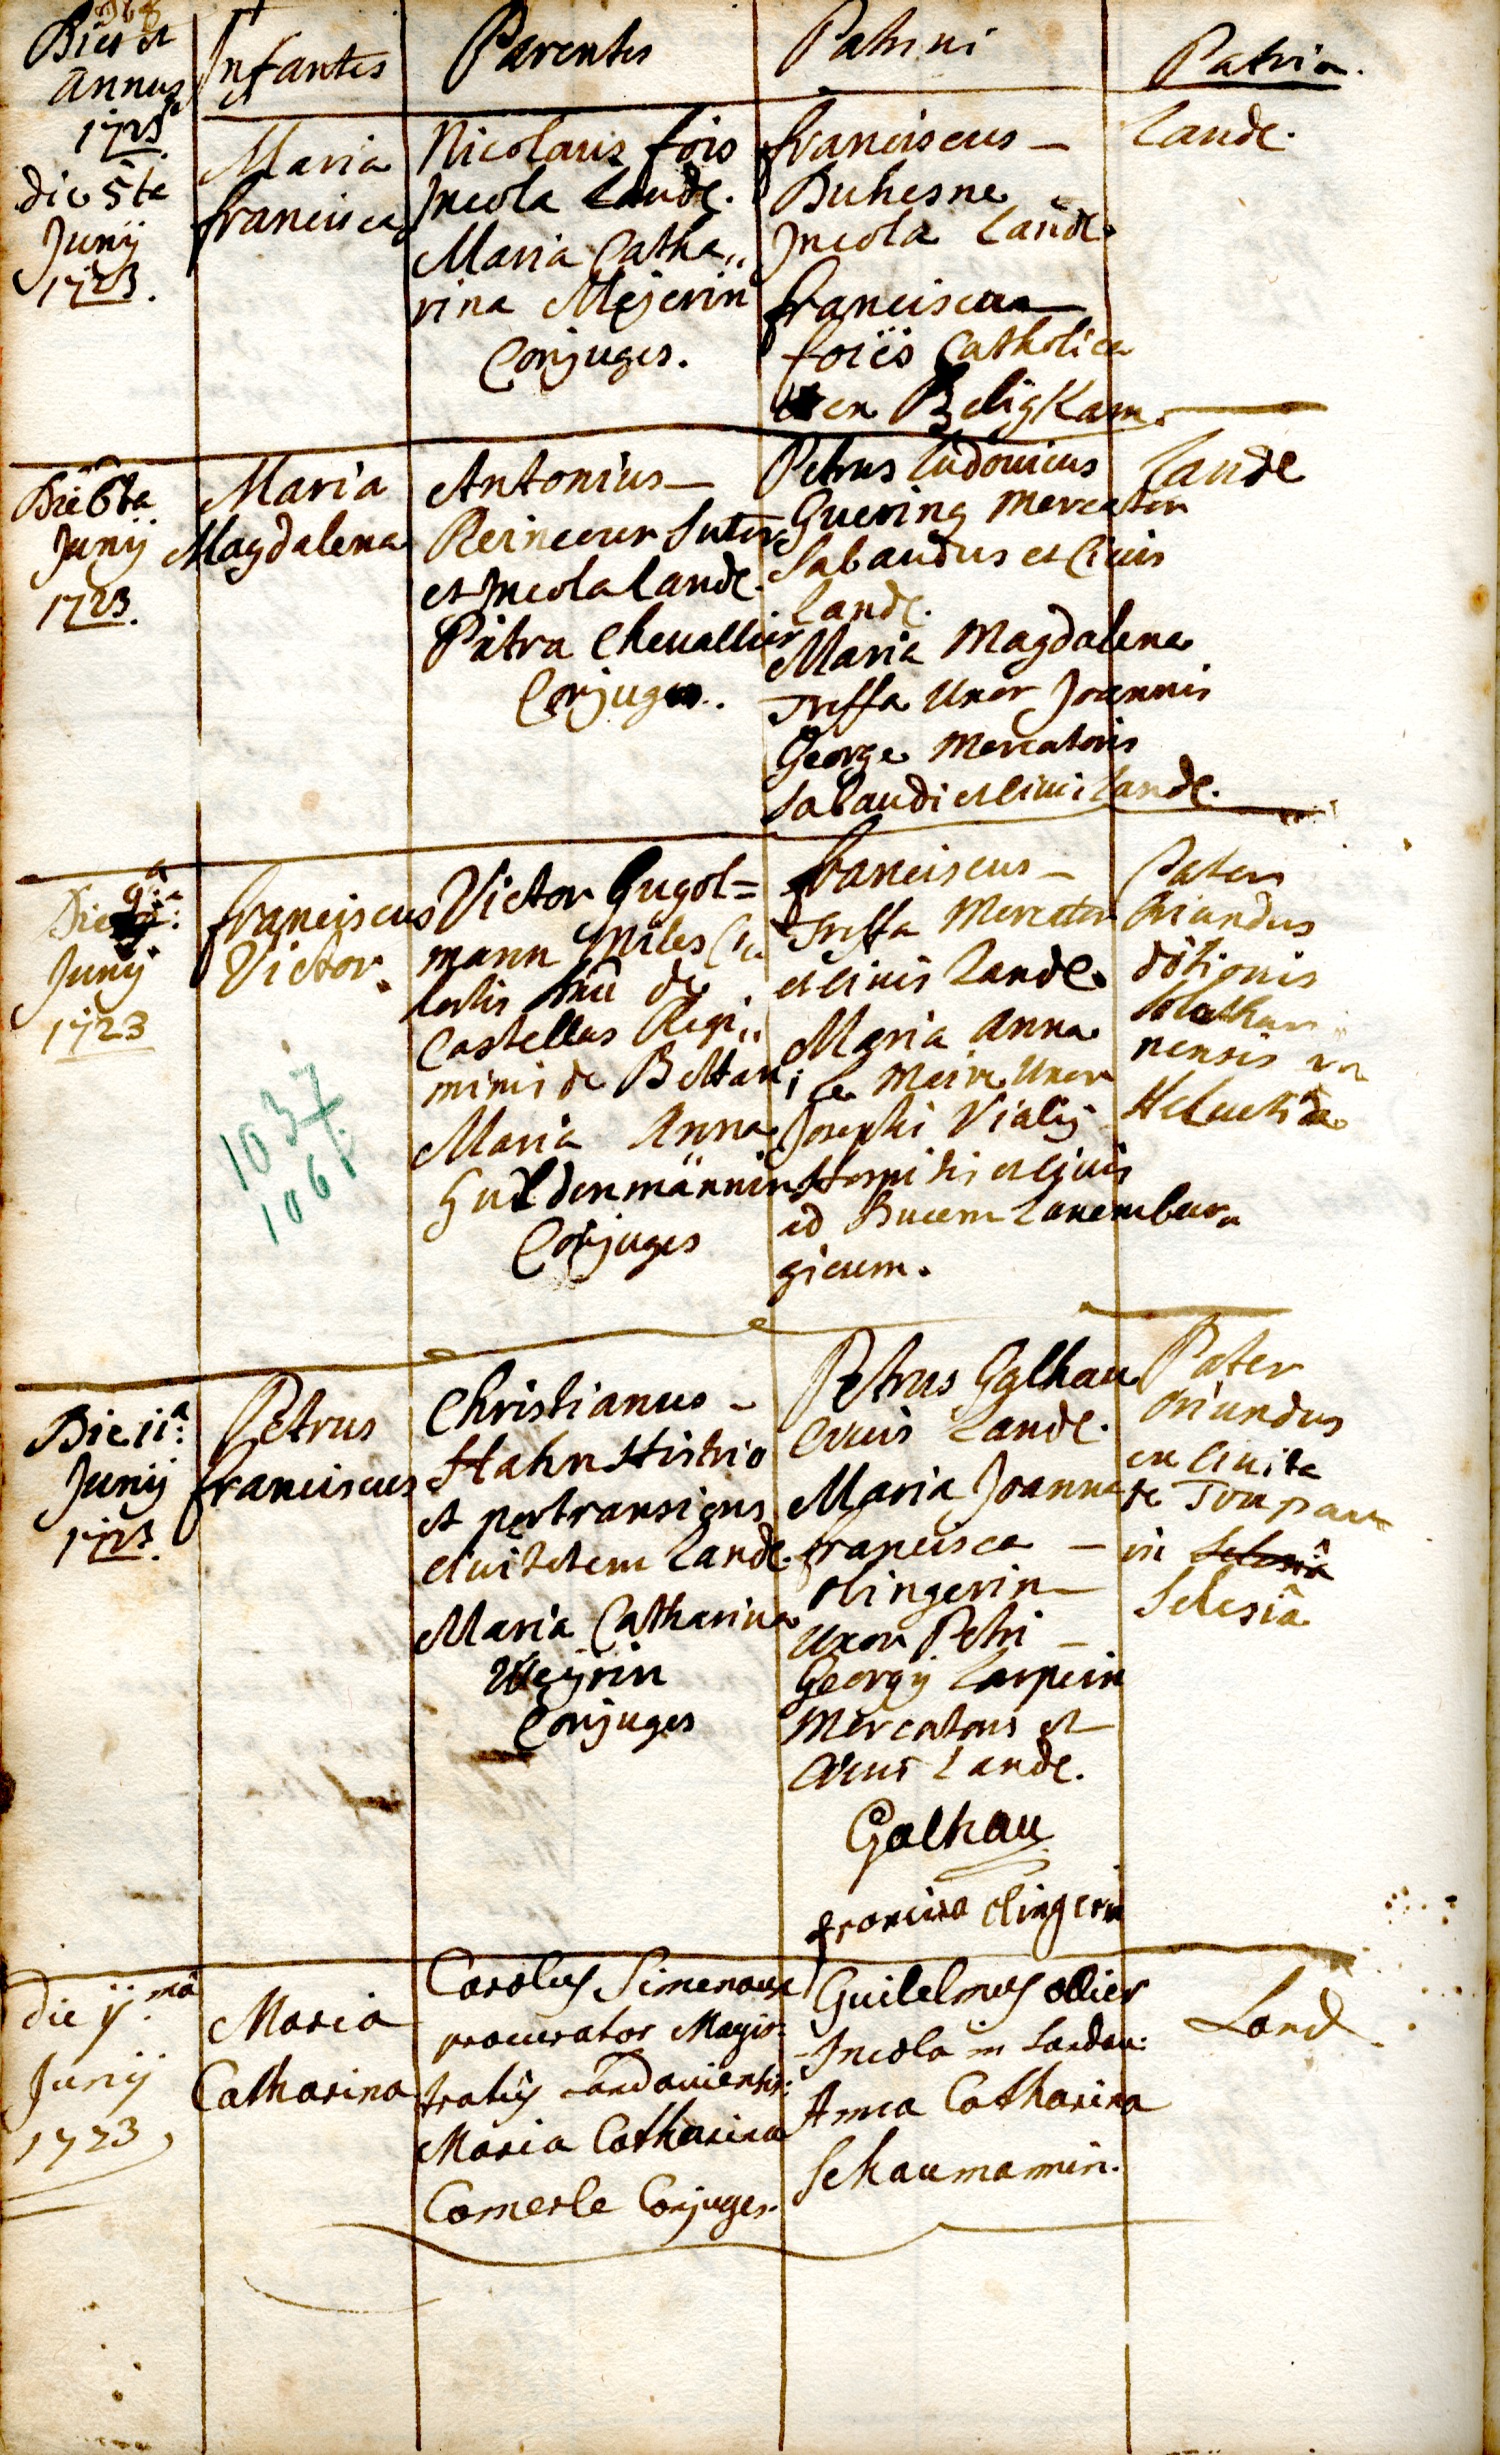 Dies et
Annus
1723
Infantes
Parentes
Patrini
Patria.
die 5ta
Junÿ
1723.
Maria
francisca
Nicolaus fois
Incola Landẽ.
Maria Catha„
rina Meÿerin
Conjuges.
franciscus –
Duhesne
Incola Landẽ.
francisca
foiis Catholica
ex Belig Kam.
Landẽ.
Die 6ta
Junÿ
1723.
Maria
Magdalena
Antonius –
Reineeur Sutor
et Incola Landẽ.
Pètra Chevallier
Conjuges.
Petrus Ludovicus
Guering Mercator
Sabaudus et Civis
Landẽ.
Maria Magdalena
Treffa Uxor Joannis
George Mercatoris
Sabaudi et Civis Landẽ.
Landẽ
Die 9a:
Junÿ
1723
franciscus
Victor.
Victor Gugol=
mann Miles
de
Castellas Regi„
minis de Bettani
Maria Anna
Guldenmännin
Conjuges
franciscus –
Treffa Mercator
et Civis Landẽ.
Maria Anna
le Maire Uxor
Josephi Vialis
Hospitis et Civis
ad Ducem Luxembur„
gicum.
Pater
Oriundus
ditionis
Solothur„
nensis
Helvetia
1037
1061.
Die 11a:
Junÿ
1723.
Petrus
franciscus
Christianus –
Hahn Histrio
et pertransiens
Civitatem Landẽ.
Maria Catharina
Weÿrin
Conjuges
Petrus Galhau
Civis Landẽ.
Maria Joanna
francisca –
Olingerin –
Uxor Petri –
Georgÿ Larpein
Mercatoris et
Civis Landẽ.
Galhau
francisca Olingerin
Pater
Oriundus
ex Civita
te Troupau
in
Silesiâ
die ÿ.ma
Junÿ
1723,
Maria
Catharina
Carolus Simenaux
procurator Magis:
tratûs Landaviensis:
Maria Catharina
Comerle Conjuges.
Guilelmus ollier
Incola in Landau:
Anna Catharina
Schaumannin.
Land